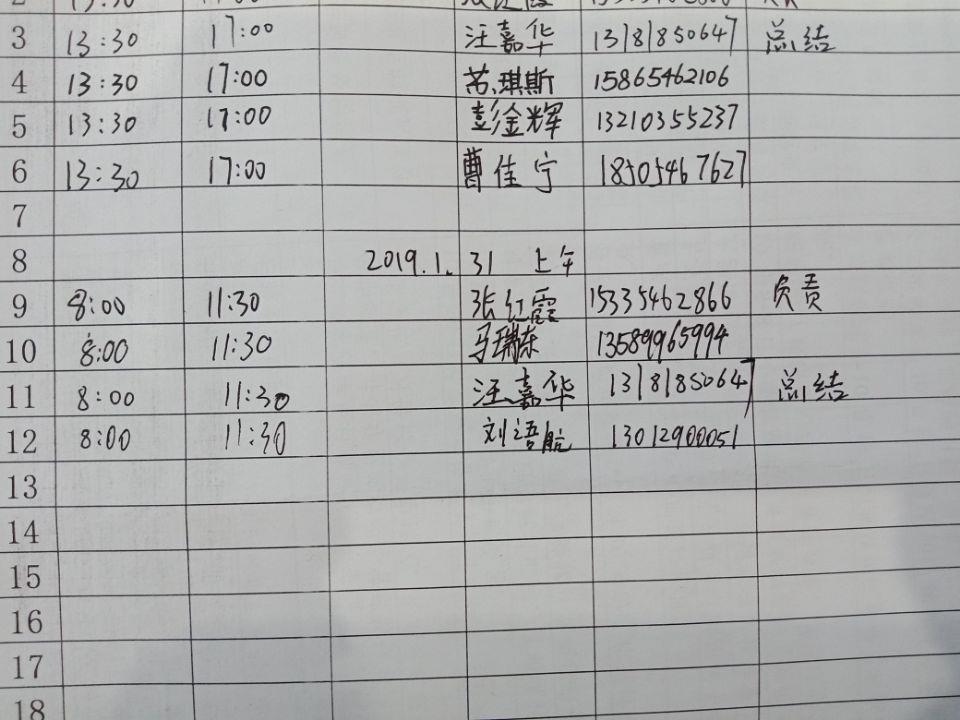 3 13:30 17:00 汪嘉华 13181850647 总结
4 13:30 17:00 苏琪斯 15865462106
5 13:30 17:00 彭金辉 13210355237
6 13:30 17:00 曹佳宁 18505467627
7
8 2019.1.31 上午
9 8:00 11:30 张红霞 15335462866 负责
10 8:00 11:30 马瑞东 13589965994
11 8:00 11:30 汪嘉华 13181850647 总结
12 8:00 11:30 刘语航 13012900051
13
14
15
16
17
18